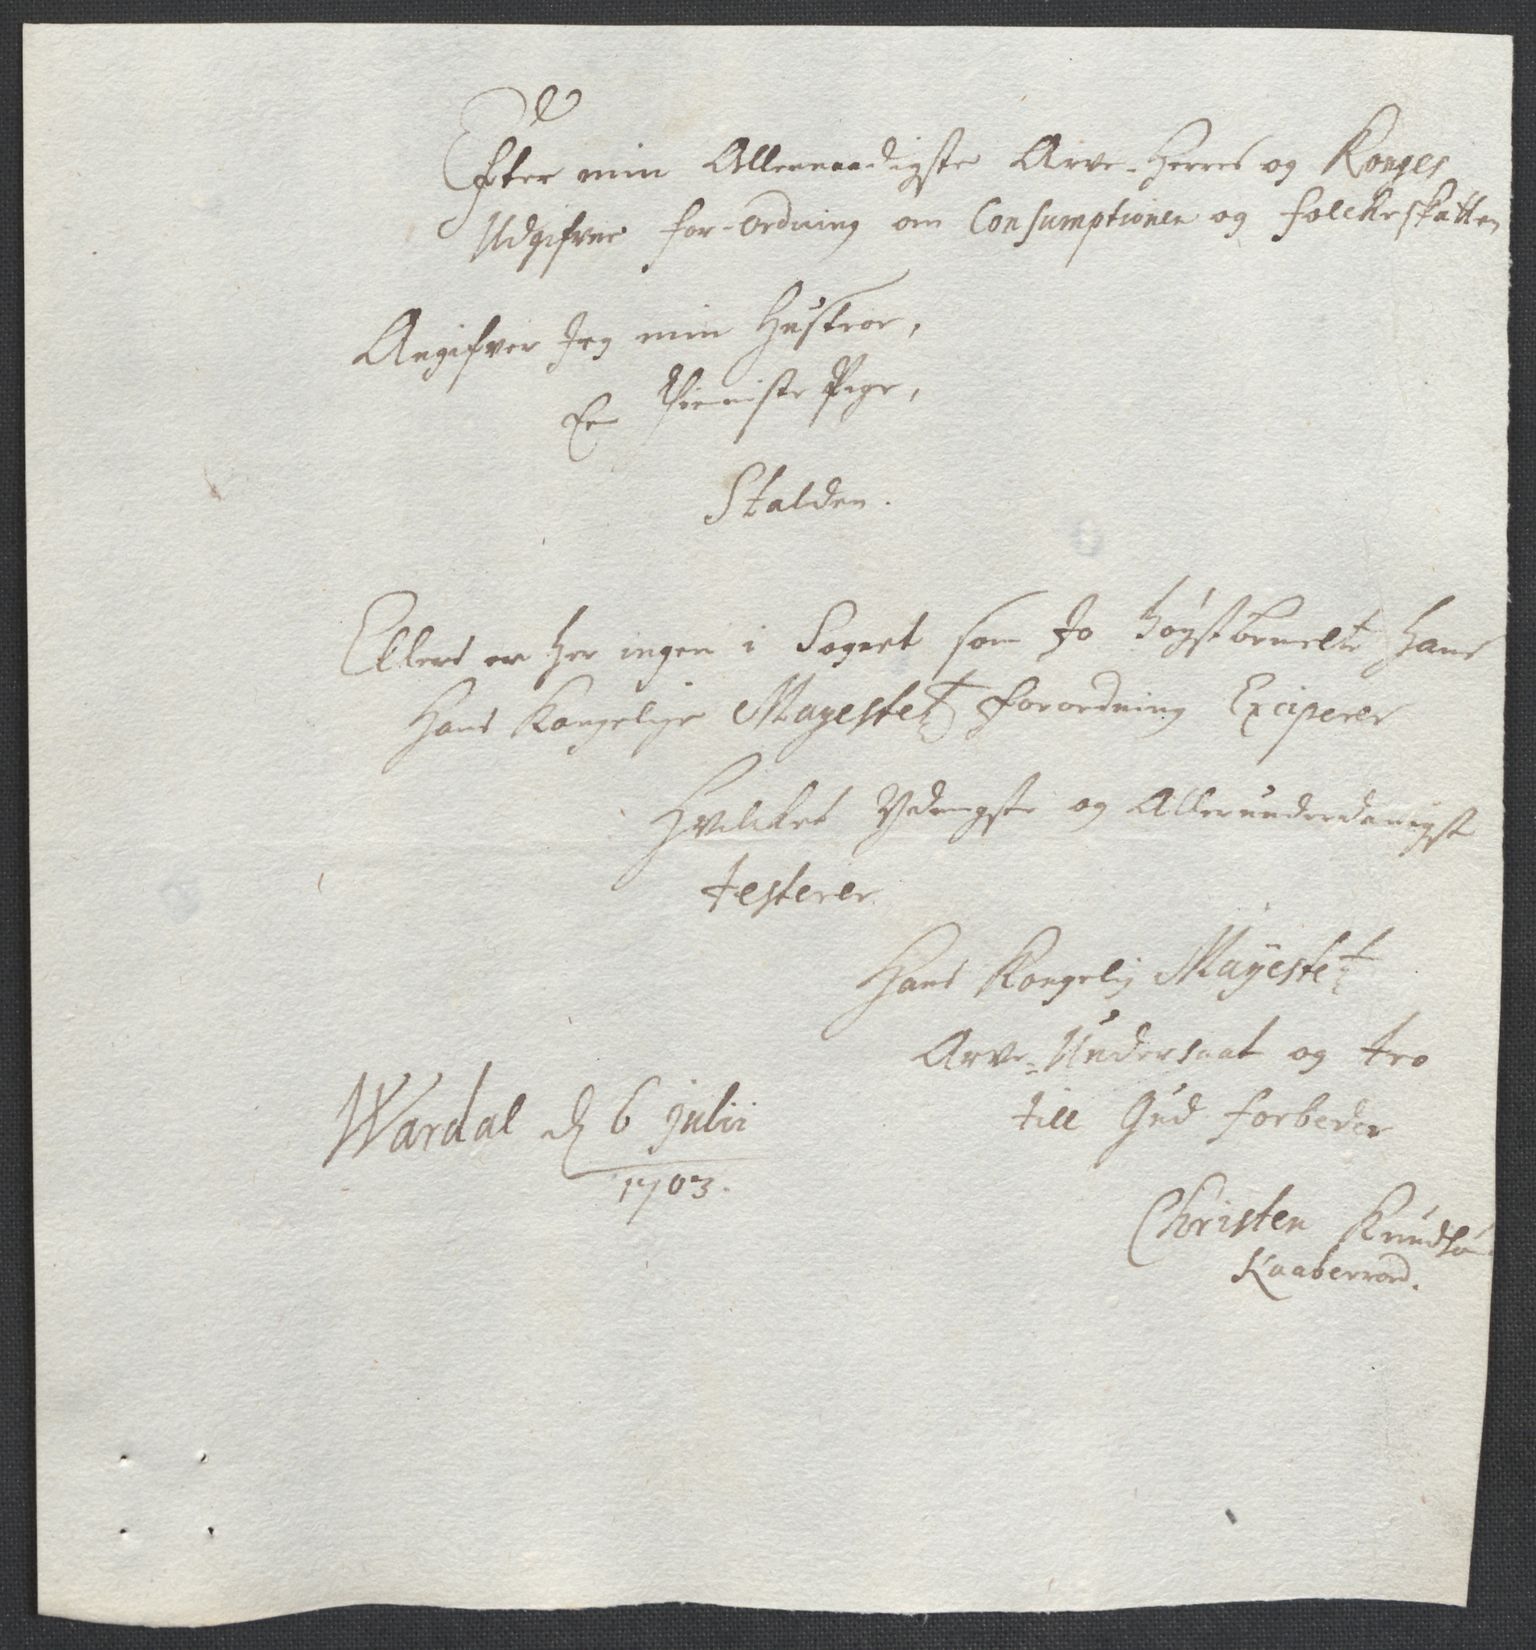 Efter min Allernaadigste Arve-Herres og Konges
Udgifvne for-ordning om Consumptionen og folckeskatten
Angifver Jeg min Hustroe,
En Thieniste Pige,
Stalden.
Ellers er her ingen i Sognet som Jo høystbemelte Hans
Hans Kongelige Mayestet forordning Exciperer
Hvilcket Ydmygste og Allerunderdanigst
testerer
Hans Kongelig Mayestet
Arve-Undersaat og tro
till Gud forbeder
Christen Knudsøn
Kaaberroed.
Wardal d 6 Julii
1703.